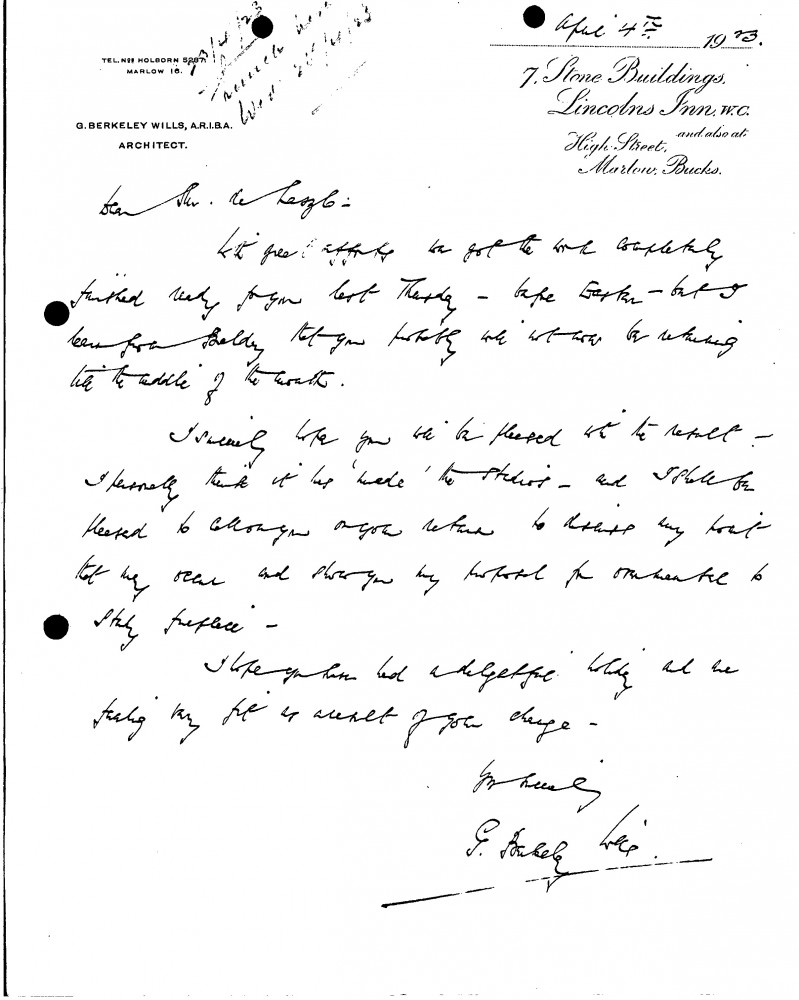 April 4th 1923.
TEL. NOS HOLBORN 5287.
MARLOW 16.
23/4/23
lunch
Wed. 25/4/23
7, Stone Buildings,
Lincolns Inn, W.C.
and also at
High Street,
Marlow, Bucks.
G. BERKELEY WILLS, A.R.I.B.A.
ARCHITECT.
Dear Mr. de Laszlo -
With great efforts we got the work completely
finished ready for you last Thursday - before Easter - but I
learn from that you probably will not now be returning
till the middle of the month.
I sincerely hope you will be pleased with the result -
I personally think it has 'made' the studios - and I shall be
pleased to call on you on your return to discuss any point
that may occur and show you my proposal for ornamental to
Study fireplace -
I hope you have had a delightful holiday and are
feeling very fit as a result of your change -
Yrs sincerely
G. Berkeley Wills.